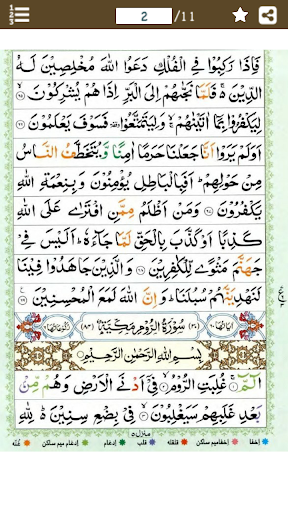 2 /11
فَإِذَا رَكِبُوْا فِى الْفُلْكِ دَعَوُا اللّٰهَ مُخْلِصِيْنَ لَهُ
الدِّيْنَ ۚ فَلَمَّا نَجّٰىهُمْ اِلَى الْبَرِّ اِذَا هُمْ يُشْرِكُوْنَ
لِيَكْفُرُوْا بِمَاۤ اٰتَيْنٰهُمْ ۙ وَلِيَتَمَتَّعُوْا ۥ فَسَوْفَ يَعْلَمُوْنَ
اَوَلَمْ يَرَوْا اَنَّا جَعَلْنَا حَرَمًا اٰمِنًا وَّيُتَخَطَّفُ النَّاسُ
مِنْ حَوْلِهِمْ ؕ اَفَبِالْبَاطِلِ يُؤْمِنُوْنَ وَبِنِعْمَةِ اللّٰهِ
يَكْفُرُوْنَ وَمَنْ اَظْلَمُ مِمَّنِ افْتَرٰى عَلَى اللّٰهِ
كَذِبًا اَوْ كَذَّبَ بِالْحَقِّ لَمَّا جَآءَهٗ ؕ اَلَيْسَ فِىْ
جَهَنَّمَ مَثْوًى لِّلْكٰفِرِيْنَ وَالَّذِيْنَ جَاهَدُوْا فِيْنَا
لَنَهْدِيَنَّهُمْ سُبُلَنَا ؕ وَاِنَّ اللّٰهَ لَمَعَ الْمُحْسِنِيْنَ
سُوْرَةُ الرُّوْمِ مَكِّيَّةٌ
بِسْمِ اللّٰهِ الرَّحْمٰنِ الرَّحِيْمِ
الٓمّٓ غُلِبَتِ الرُّوْمُ فِىْۤ اَدْنَى الْاَرْضِ وَهُمْ مِّنْۢ
بَعْدِ غَلَبِهِمْ سَيَغْلِبُوْنَ فِىْ بِضْعِ سِنِيْنَ ؕ لِلّٰهِ
منزل ۵
اخفا اخفامیم ساکن قلقله قلب ادغام ادغام میم ساکن غُنّه